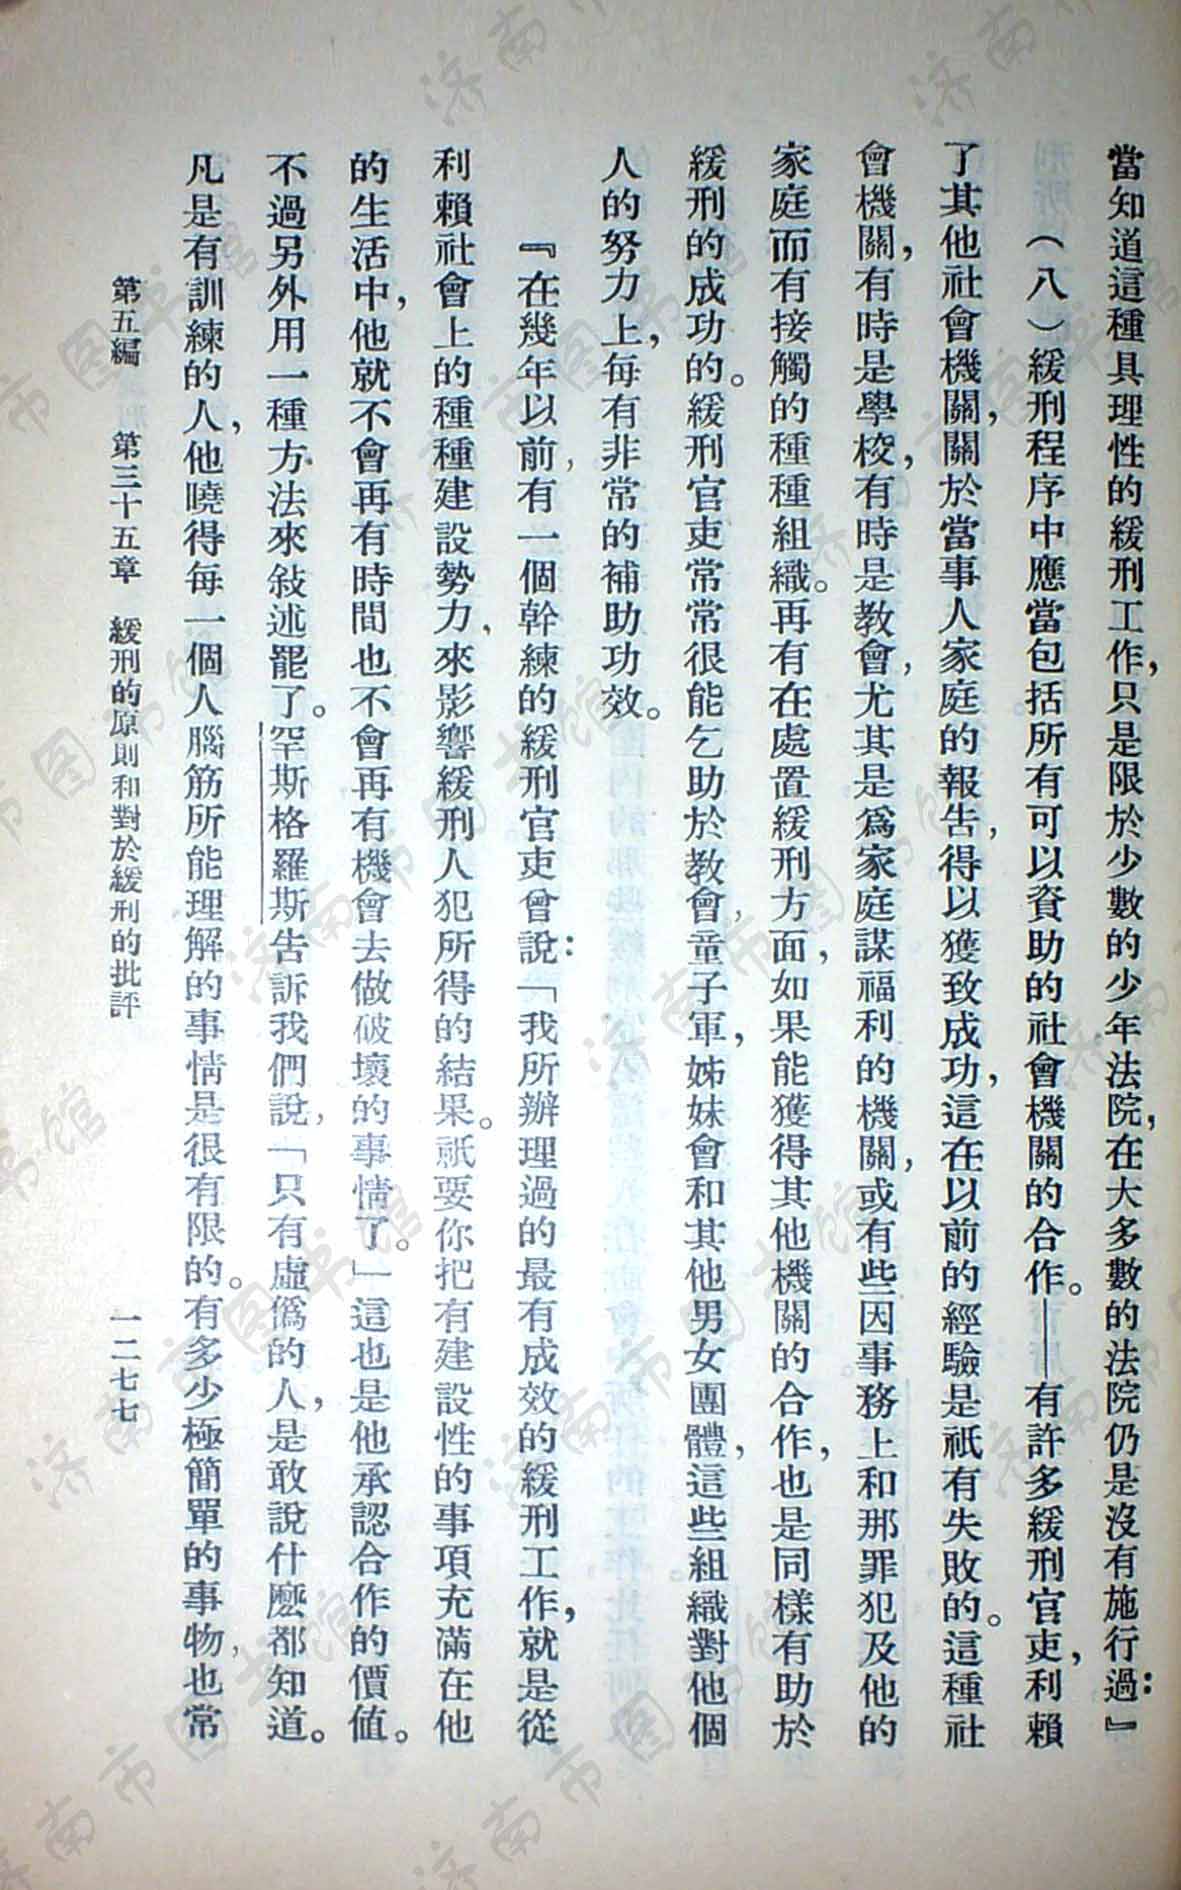 當知道這種具理性的緩刑工作，只是限於少數的少年法院，在大多數的法院仍是沒有施行過：』
（八）緩刑程序中應當包括所有可以資助的社會機關的合作。——有許多緩刑官吏，利賴
了其他社會機關，關於當事人家庭的報告，得以獲致成功，這在以前的經驗是祇有失敗的。這種社
會機關，有時是學校，有時是教會，尤其是爲家庭謀福利的機關，或有些因事務上和那罪犯及他的
家庭而有接觸的種種組織。再有在處置緩刑方面，如果能獲得其他機關的合作，也是同樣有助於
緩刑的成功的。緩刑官吏常常很能乞助於教會，童子軍，姊妹會和其他男女團體，這些組織對他個
人的努力上，每有非常的補助功效。
『在幾年以前，有一個幹練的緩刑官吏曾說：「我所辦理過的最有成效的緩刑工作，就是從
利賴社會上的種種建設勢力，來影響緩刑人犯所得的結果。祇要你把有建設性的事項充滿在他
的生活中，他就不會再有時間也不會再有機會去做破壞的事情了。」這也是他承認合作的價值。
不過另外用一種方法來敍述罷了。罕斯格羅斯告訴我們說，「只有虛僞的人，是敢說什麼都知道。
凡是有訓練的人，他曉得每一個人腦筋所能理解的事情是很有限的。有多少極簡單的事物，也常
第五編　第三十五章　緩刑的原則和對於緩刑的批評　一二七七
濟南市图书馆